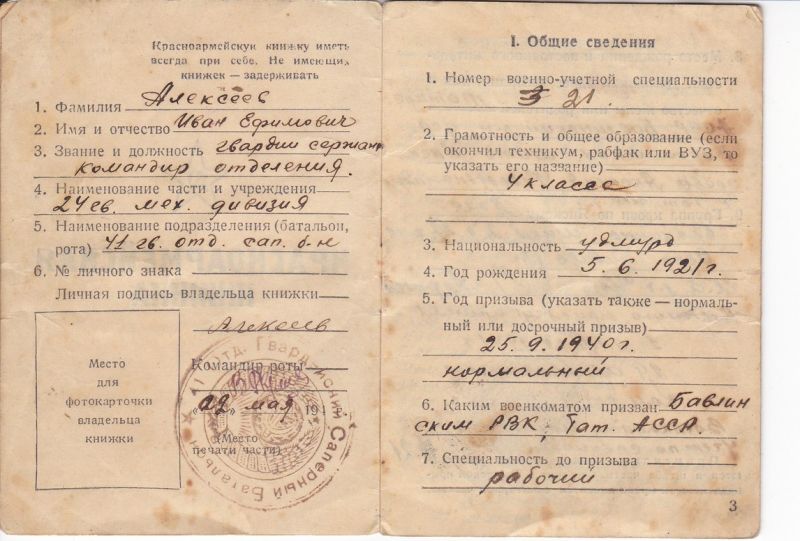 Красноармейскую книжку иметь
всегда при себе. Не имеющих
книжек — задерживать
1. Фамилия Алексеев
2. Имя и отчество Иван Ефимович
3. Звание и должность гвардии сержант
командир отделения.
4. Наименование части и учреждения
24 гв. мех. дивизия
5. Наименование подразделения (батальон,
рота) 41 гв. отд. сап. б-н
6. № личного знака
Личная подпись владельца книжки
Алексеев
Место
для
фотокарточки
владельца
книжки
Командир роты
«29» мая 19
(Место
печати части)
Отд. Гвардейский Саперный Баталь
I. Общие сведения
1. Номер военно-учетной специальности
21
2. Грамотность и общее образование (если
окончил техникум, рабфак или ВУЗ, то
указать его название)
4 класса
3. Национальность удмурд
4. Год рождения 5. 6. 1921 г.
5. Год призыва (указать также — нормаль-
ный или досрочный призыв)
25. 9. 1940 г.
нормальный
6. Каким военкоматом призван Бавлин
ским РВК, Тат. АССР.
7. Специальность до призыва
рабочий
3